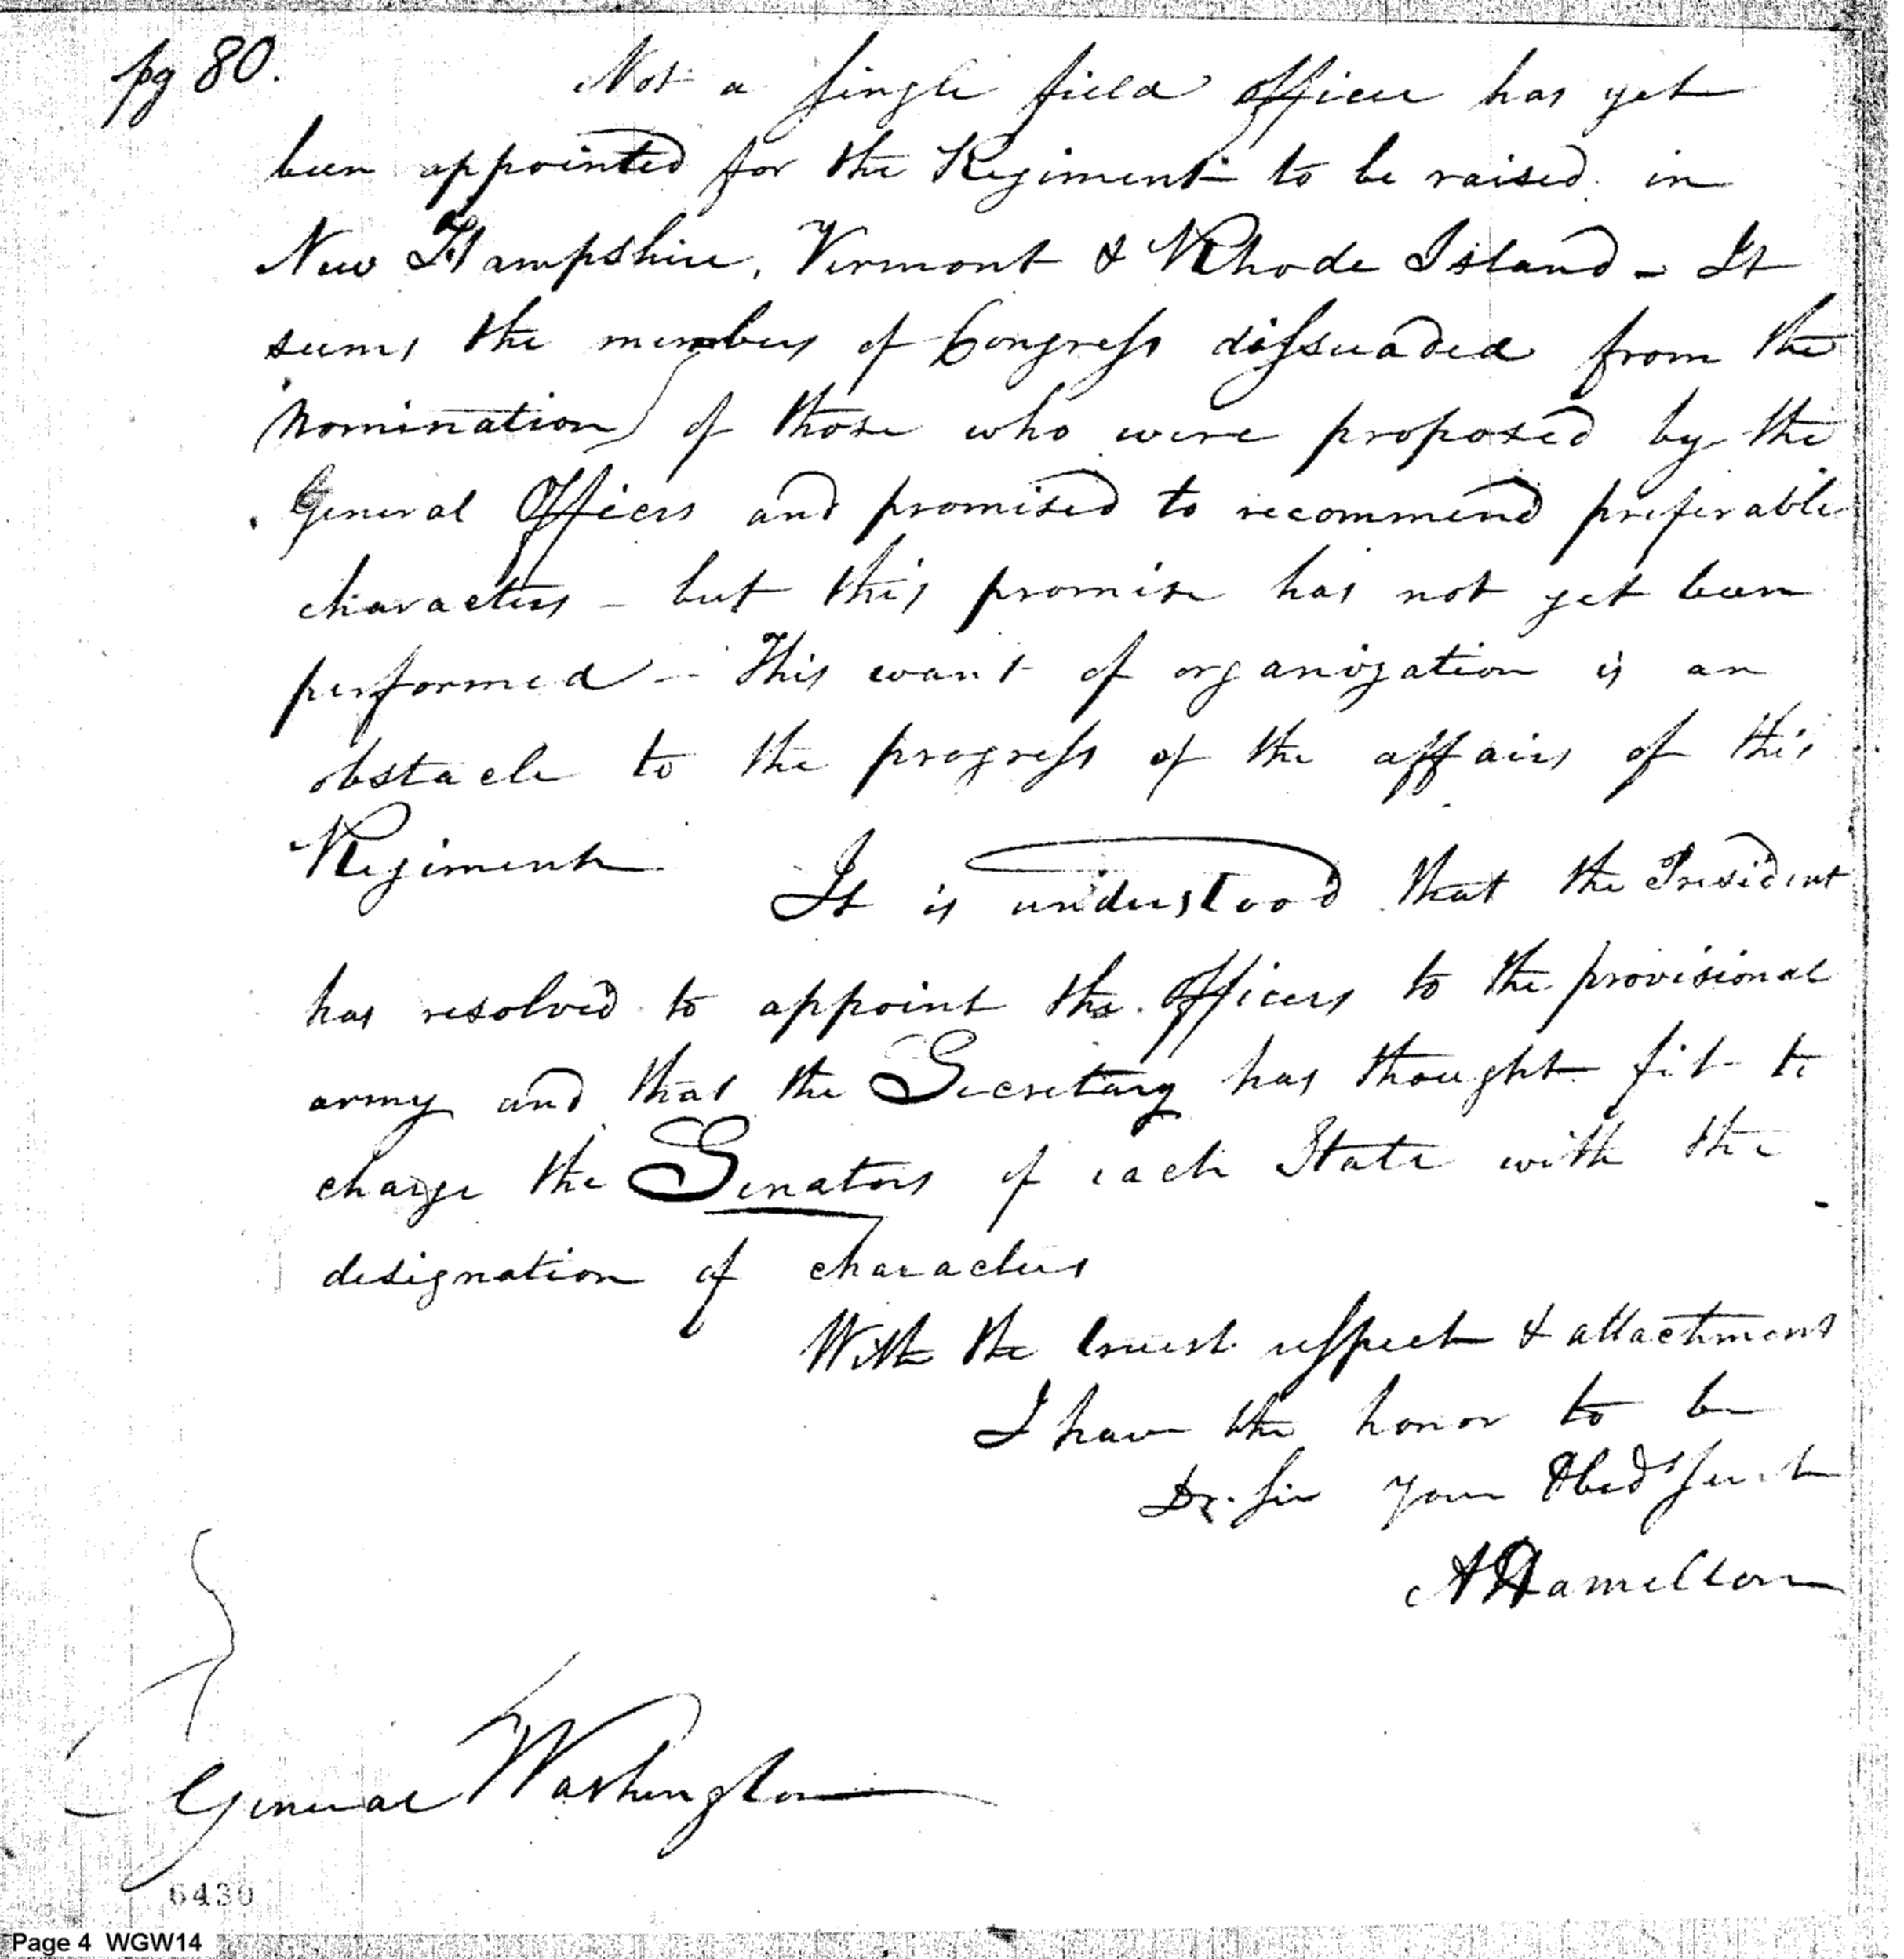 pg 80.
Not a single field officer has yet
been appointed for the Regiment to be raised in
New Hampshire, Vermont & Rhode Island - It
seems the members of Congress dissuaded from the
nomination of those who were proposed by the
General Officers and promised to recommend preferable
characters - but this promise has not yet been
performed - This want of organization is an
obstacle to the progress of the affairs of this
Regiment
It is understood that the President
has resolved to appoint the Officers to the provisional
army and that the Secretary has thought fit to
charge the Senators of each State with the
designation of characters
With the truest respect & attachment
I have the honor to be
Dr. Sir Your Obed Servt
A Hamilton
General Washington
6430
Page 4 WGW14